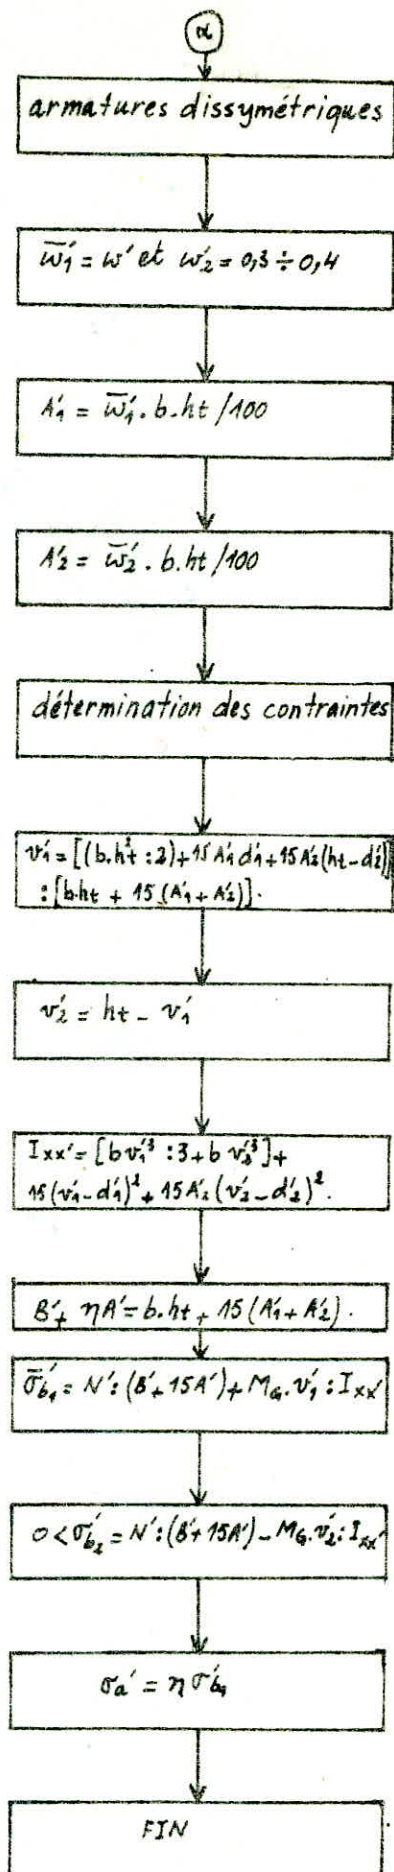 α
armatures dissymétriques
ω̅'₁ = ω' et ω'₂ = 0,3 ÷ 0,4
A'₁ = ω̅'₁ . b . ht / 100
A'₂ = ω̅'₂ . b . ht / 100
détermination des contraintes
v'₁ = [(b.h²t : 2) + 15 A'₁ d'₁ + 15 A'₂ (ht - d'₂)]
: [b.ht + 15 (A'₁ + A'₂)].
v'₂ = ht - v'₁
Ixx' = [b v'₁³ : 3 + b v'₂³] +
15 (v'₁ - d'₁)² + 15 A'₂ (v'₂ - d'₂)².
B' + ηA' = b.ht + 15 (A'₁ + A'₂).
σ̅'b₁ = N' : (B' + 15A') + MG . v'₁ : Ixx'
0 < σ'b₂ = N' : (B' + 15A') - MG . v'₂ : Ixx'
σa' = η σ'b₁
FIN